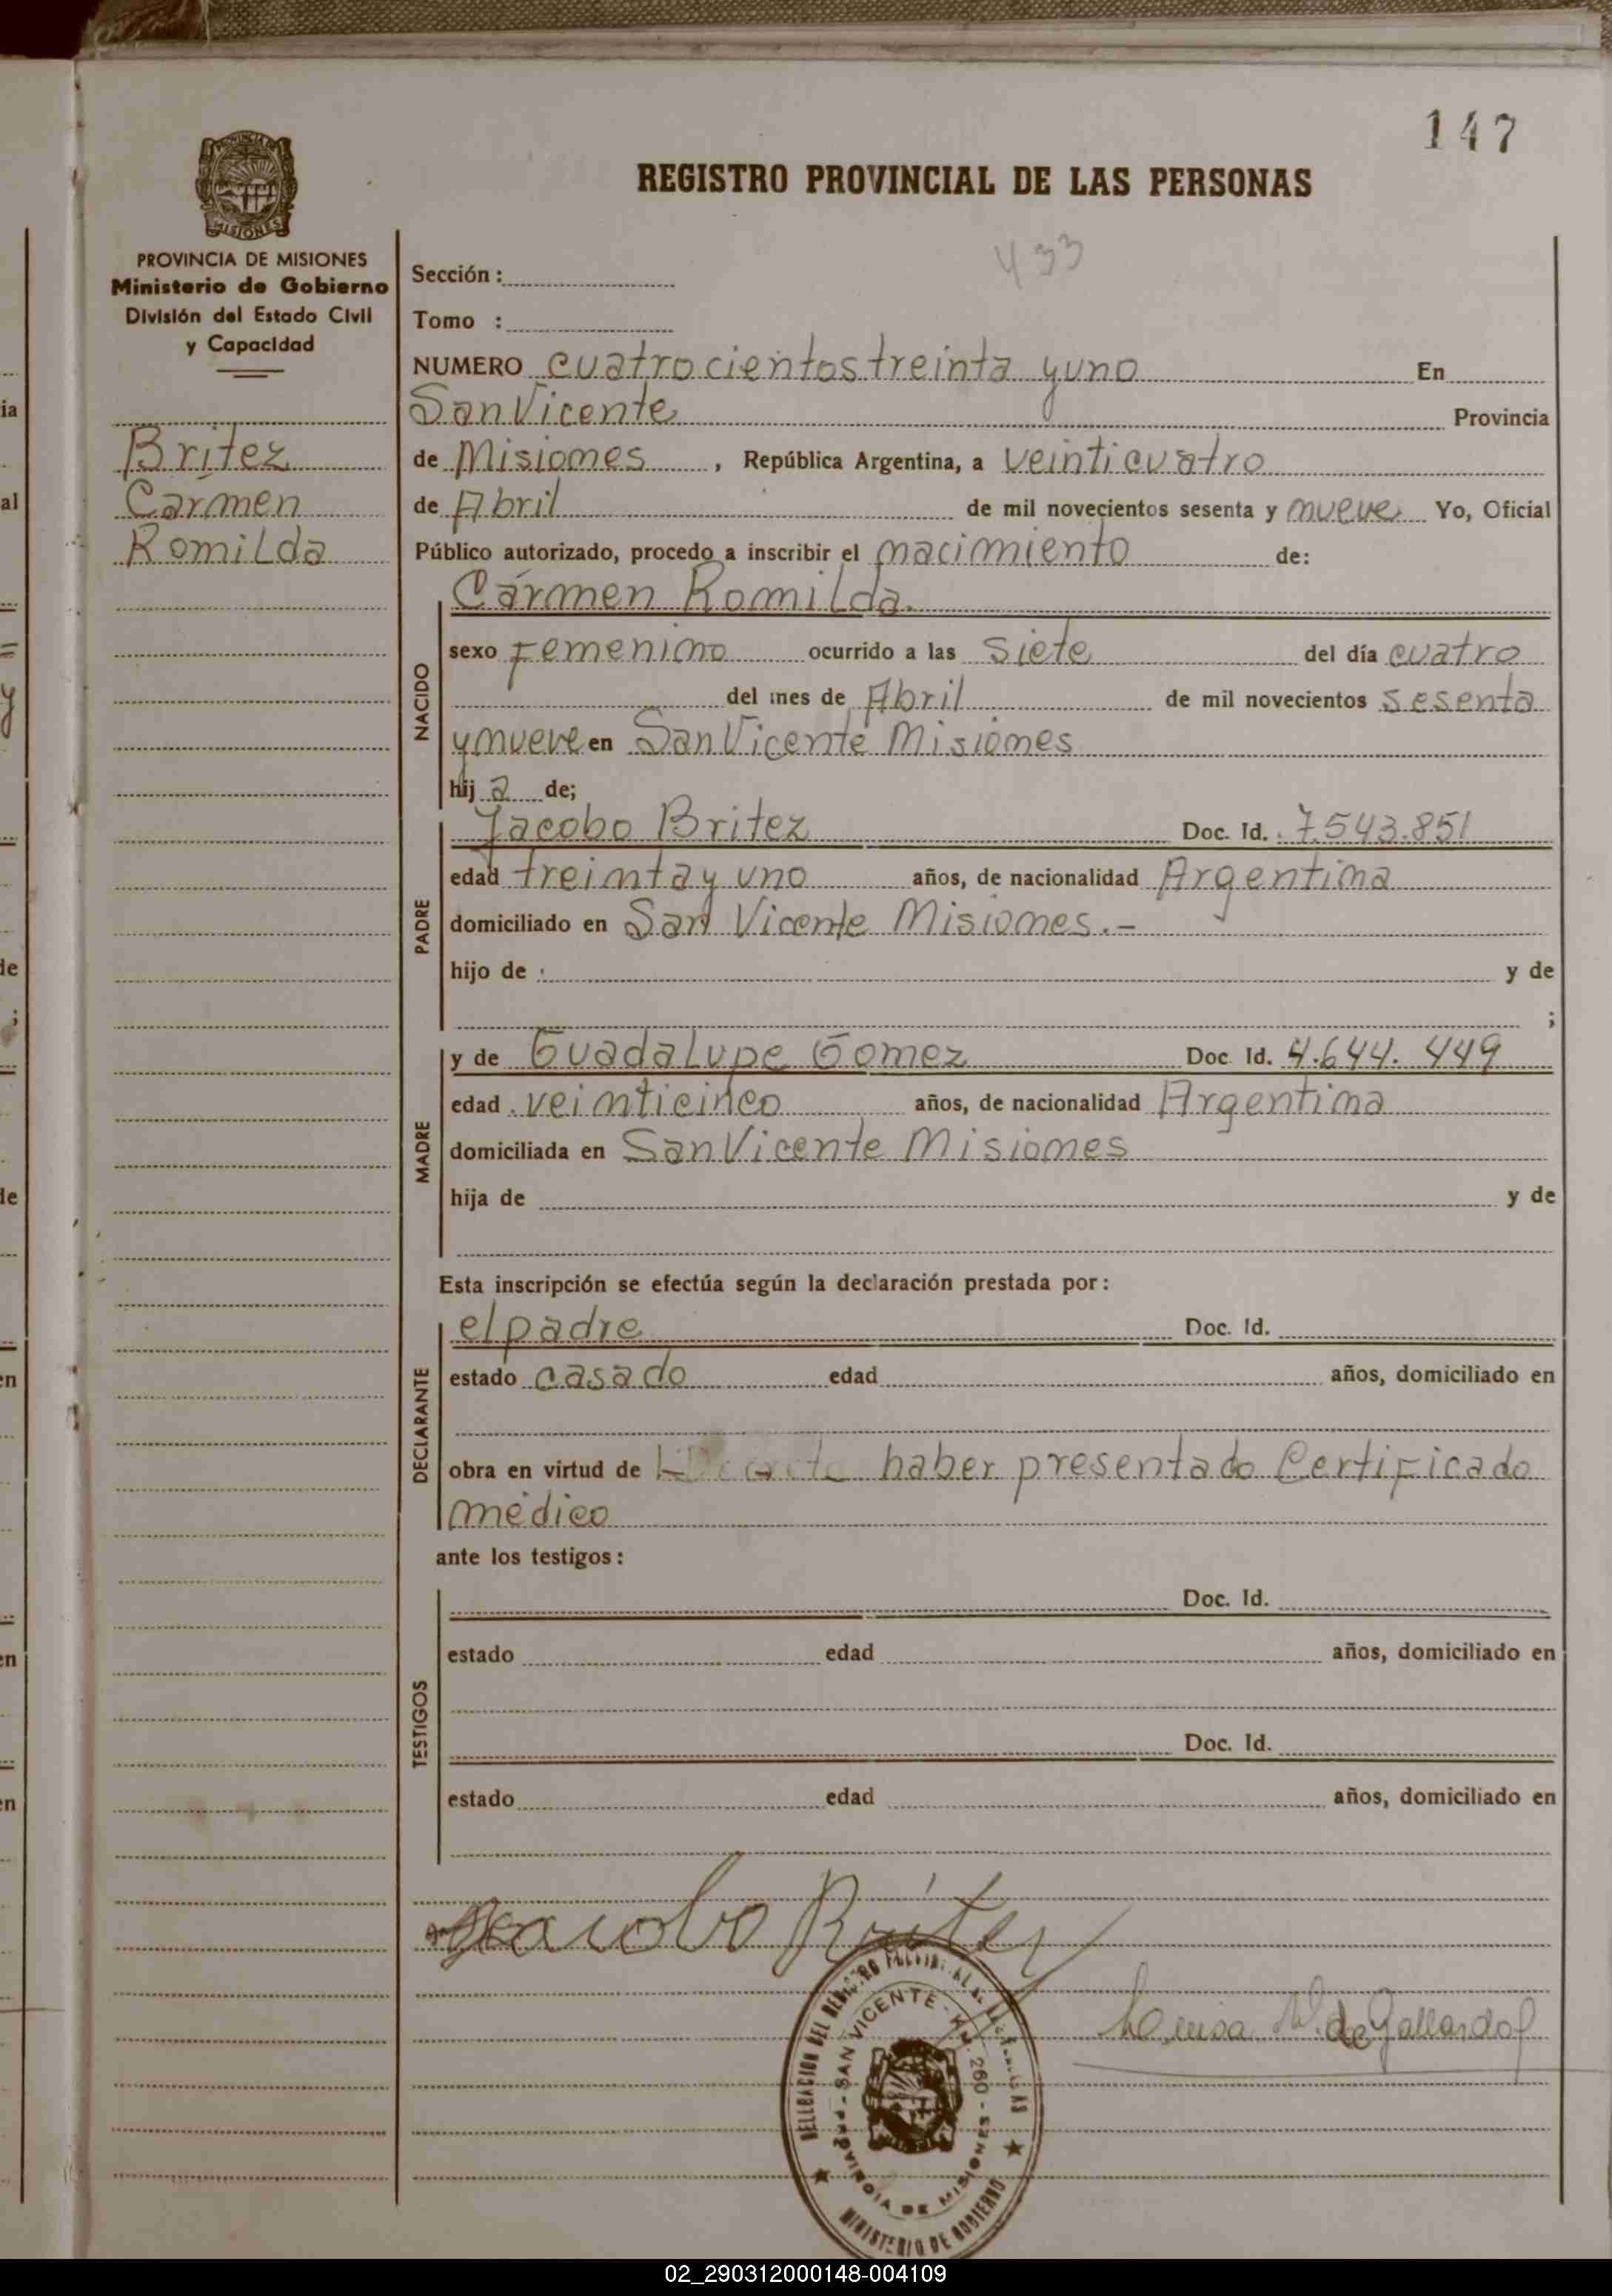 147
REGISTRO PROVINCIAL DE LAS PERSONAS
PROVINCIA DE MISIONES
Ministerio de Gobierno
División del Estado Civil
y Capacidad
Britez
Carmen
Romilda
433
Sección :
Tomo :
NUMERO cuatrocientos treinta y uno En
San Vicente Provincia
de Misiones , República Argentina, a veinticuatro
de Abril de mil novecientos sesenta y nueve Yo, Oficial
Público autorizado, procedo a inscribir el nacimiento de:
NACIDO
Cármen Romilda.
sexo Femenino ocurrido a las Siete del día cuatro
del mes de Abril de mil novecientos sesenta
y nueve en San Vicente Misiones
hij a de;
PADRE
Jacobo Britez Doc. Id. 7.543.851
edad treinta y uno años, de nacionalidad Argentina
domiciliado en San Vicente Misiones.-
hijo de : y de
;
MADRE
y de Guadalupe Gomez Doc. Id. 4.644.449
edad veinticinco años, de nacionalidad Argentina
domiciliada en San Vicente Misiones
hija de y de
Esta inscripción se efectúa según la declaración prestada por:
DECLARANTE
el padre Doc. Id.
estado casado edad años, domiciliado en
obra en virtud de haber presentado Certificado
médico
ante los testigos:
TESTIGOS
Doc. Id.
estado edad años, domiciliado en
Doc. Id.
estado edad años, domiciliado en
Jacobo Britez
Luisa de Gallardo
DELEGACION DEL REGISTRO PROVINCIAL DE LAS PERSONAS
SAN VICENTE - K.M. 260 - PROVINCIA DE MISIONES
MINISTERIO DE GOBIERNO
02_290312000148-004109